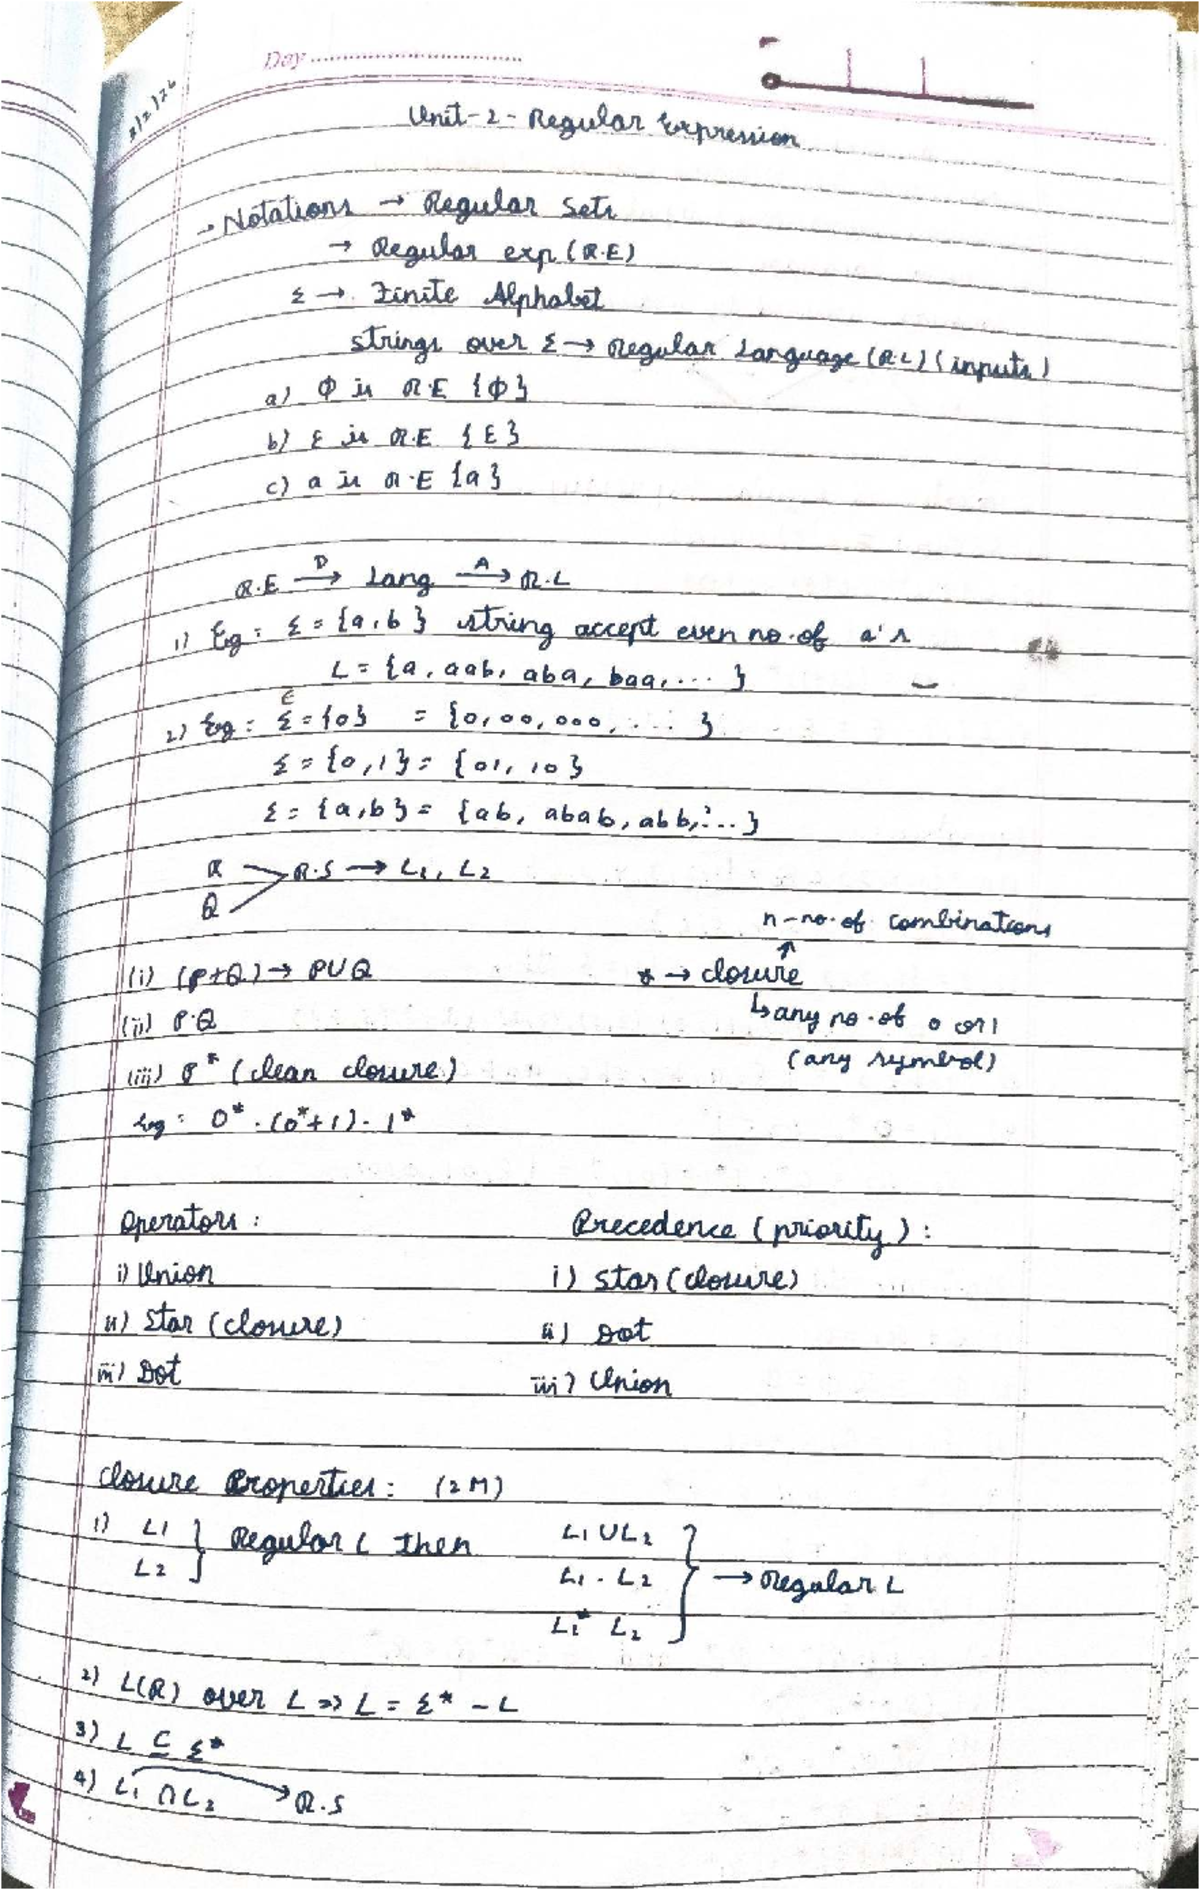 Day
3/2/26
Unit-2- Regular Expression
→ Notations → Regular Sets
→ Regular exp (R.E)
Σ → Finite Alphabet
strings over Σ → Regular Language (R.L) (inputs)
a) Φ is R.E {Φ}
b) ε is R.E {ε}
c) a is R.E {a}
R.E —D→ Lang —A→ R.L
1) Eg: Σ = {a,b} string accept even no.of a's
L = {a, aab, aba, baa, ... }
ε
2) Eg: Σ = {0} = {0,00,000, .... }
Σ = {0,1} = {01, 10}
Σ = {a,b} = {ab, abab, abb, ...}
R.S → L1, L2
Q
n-no.of combinations
(i) (P+Q) → P∪Q * → closure
(ii) P.Q ↳ any no.of 0 or 1
(iii) P* (clean closure) (any symbol)
Eg: 0* . (0*+1) . 1*
Operators : Precedence (priority) :
i) Union i) star (closure)
ii) Star (closure) ii) Dot
iii) Dot iii) Union
Closure Properties: (2M)
1) L1 } Regular L then L1 ∪ L2
L2 L1 . L2 → Regular L
L1* L2
2) L(R) over L => L = Σ* - L
3) L ⊆ Σ*
4) L1 ∩ L2 → R.S